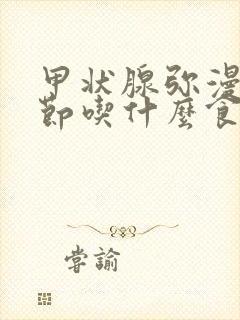 甲状腺弥漫
節喫什麽食
嘗諭